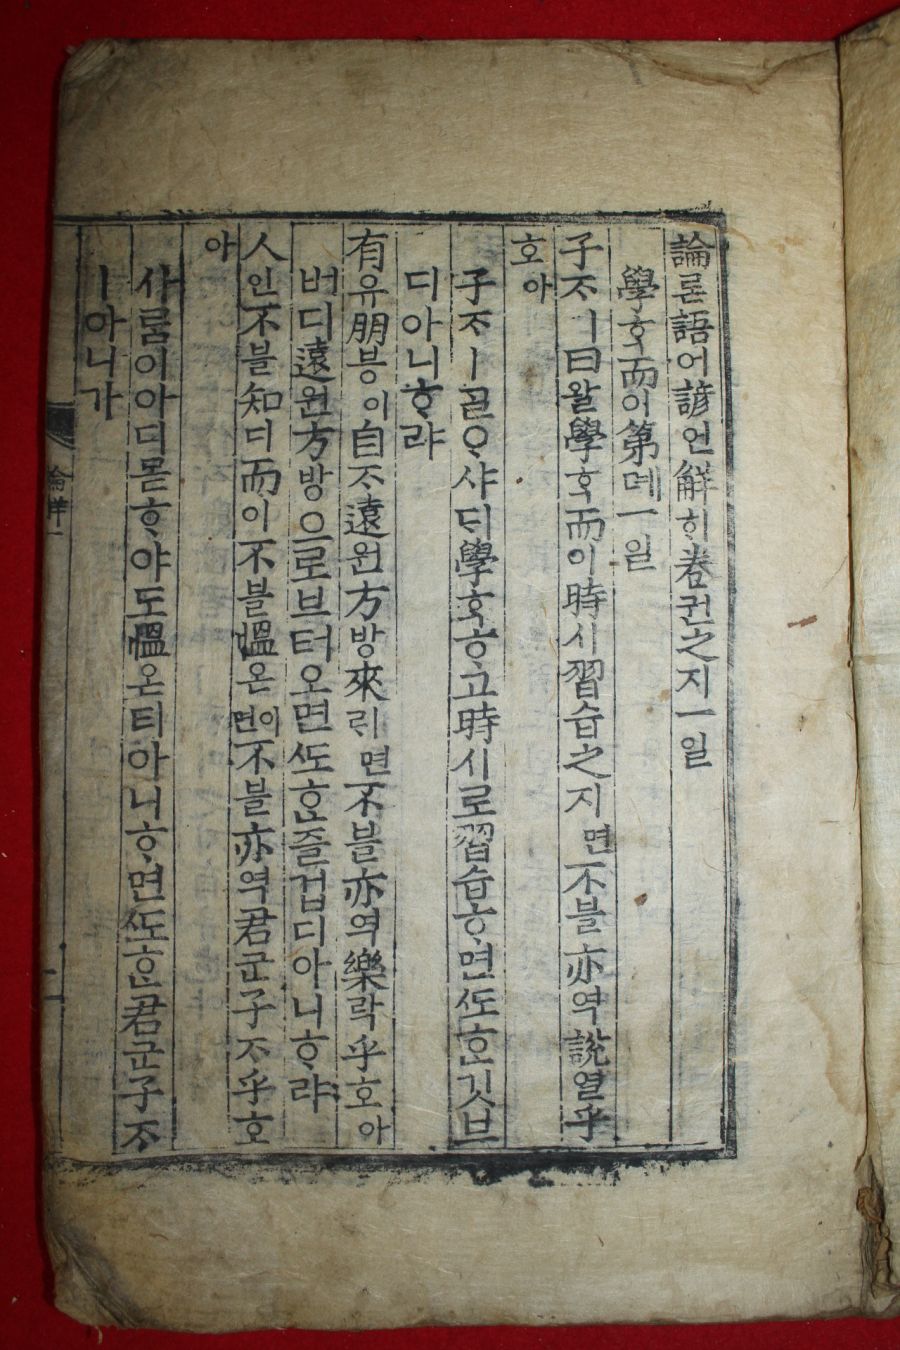 論론語어諺언解ᄒᆡ卷권之지一일
學ᄒᆞᆨ而이第뎨一일
子ᄌᆞㅣ曰왈學ᄒᆞᆨ而이時시習습之지면不블亦역說열乎
호아
子ᄌᆞㅣᄀᆞᆯᄋᆞ샤ᄃᆡ學ᄒᆞᆨᄒᆞ고時시로習습ᄒᆞ면ᄯᅩᄒᆞᆫ깃브
디아니ᄒᆞ랴
有유朋븡이自ᄌᆞ遠원方방來ᄅᆡ면不블亦역樂락乎호아
버디遠원方방으로브터오면ᄯᅩᄒᆞᆫ즐겁디아니ᄒᆞ랴
人인不블知디而이不블慍온이면不블亦역君군子ᄌᆞ乎호
아
사ᄅᆞᆷ이아디몯ᄒᆞ야도慍온티아니ᄒᆞ면ᄯᅩᄒᆞᆫ君군子ᄌᆞ
ㅣ아니가
論解一